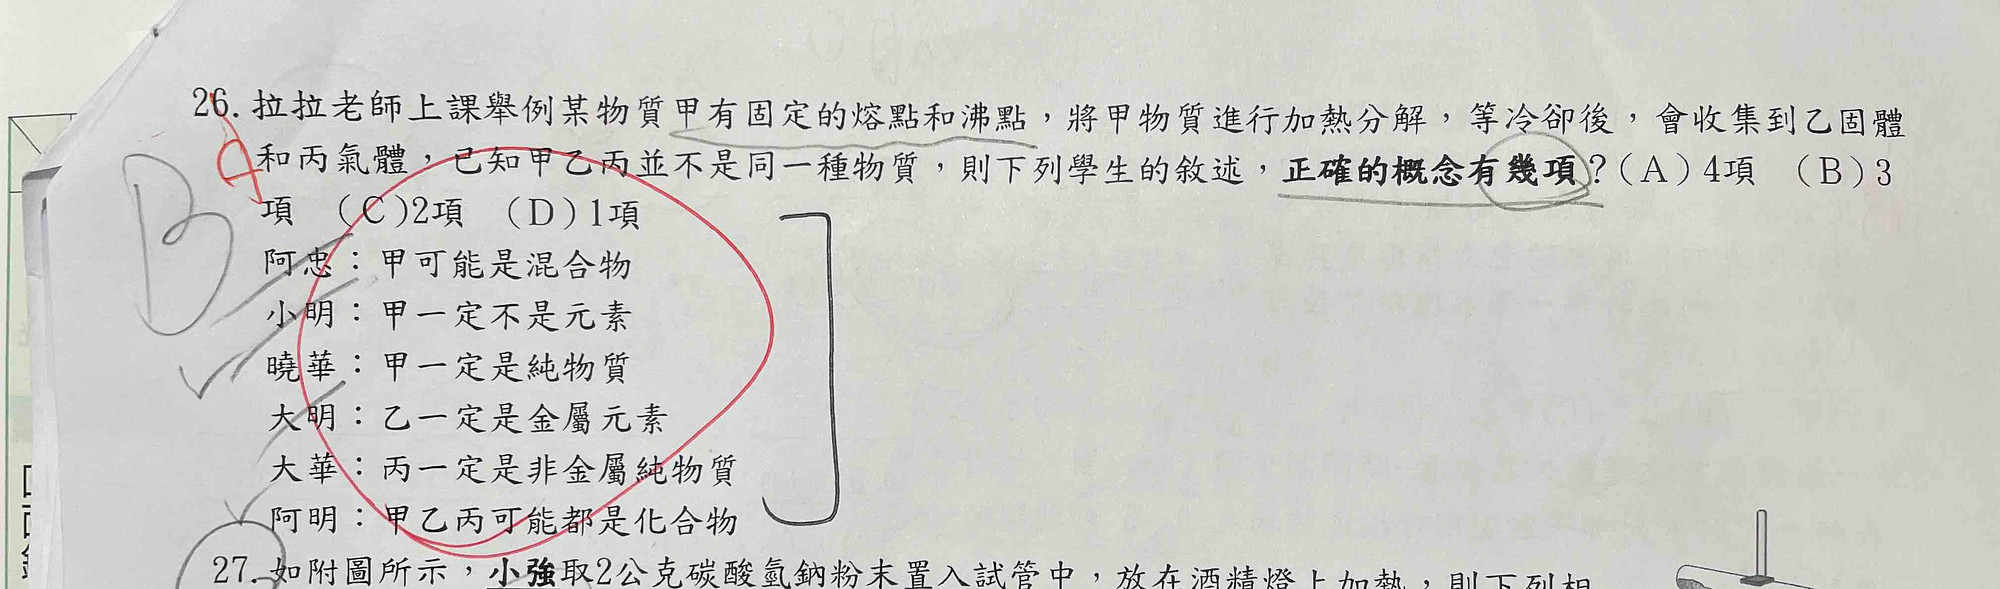 26. 拉拉老師上課舉例某物質甲有固定的熔點和沸點，將甲物質進行加熱分解，等冷卻後，會收集到乙固體
和丙氣體，已知甲乙丙並不是同一種物質，則下列學生的敘述，正確的概念有幾項？(A)4項 (B)3
項 (C)2項 (D)1項
B
阿忠：甲可能是混合物
小明：甲一定不是元素
曉華：甲一定是純物質
大明：乙一定是金屬元素
大華：丙一定是非金屬純物質
阿明：甲乙丙可能都是化合物
27. 如附圖所示，小強取2公克碳酸氫鈉粉末置入試管中，放在酒精燈上加熱，則下列相